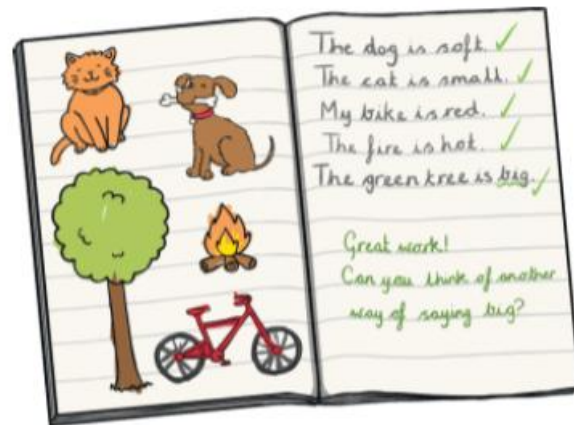 The dog is soft.
The cat is small.
My bike is red.
The fire is hot.
The green tree is big.
Great work!
Can you think of another
way of saying big?